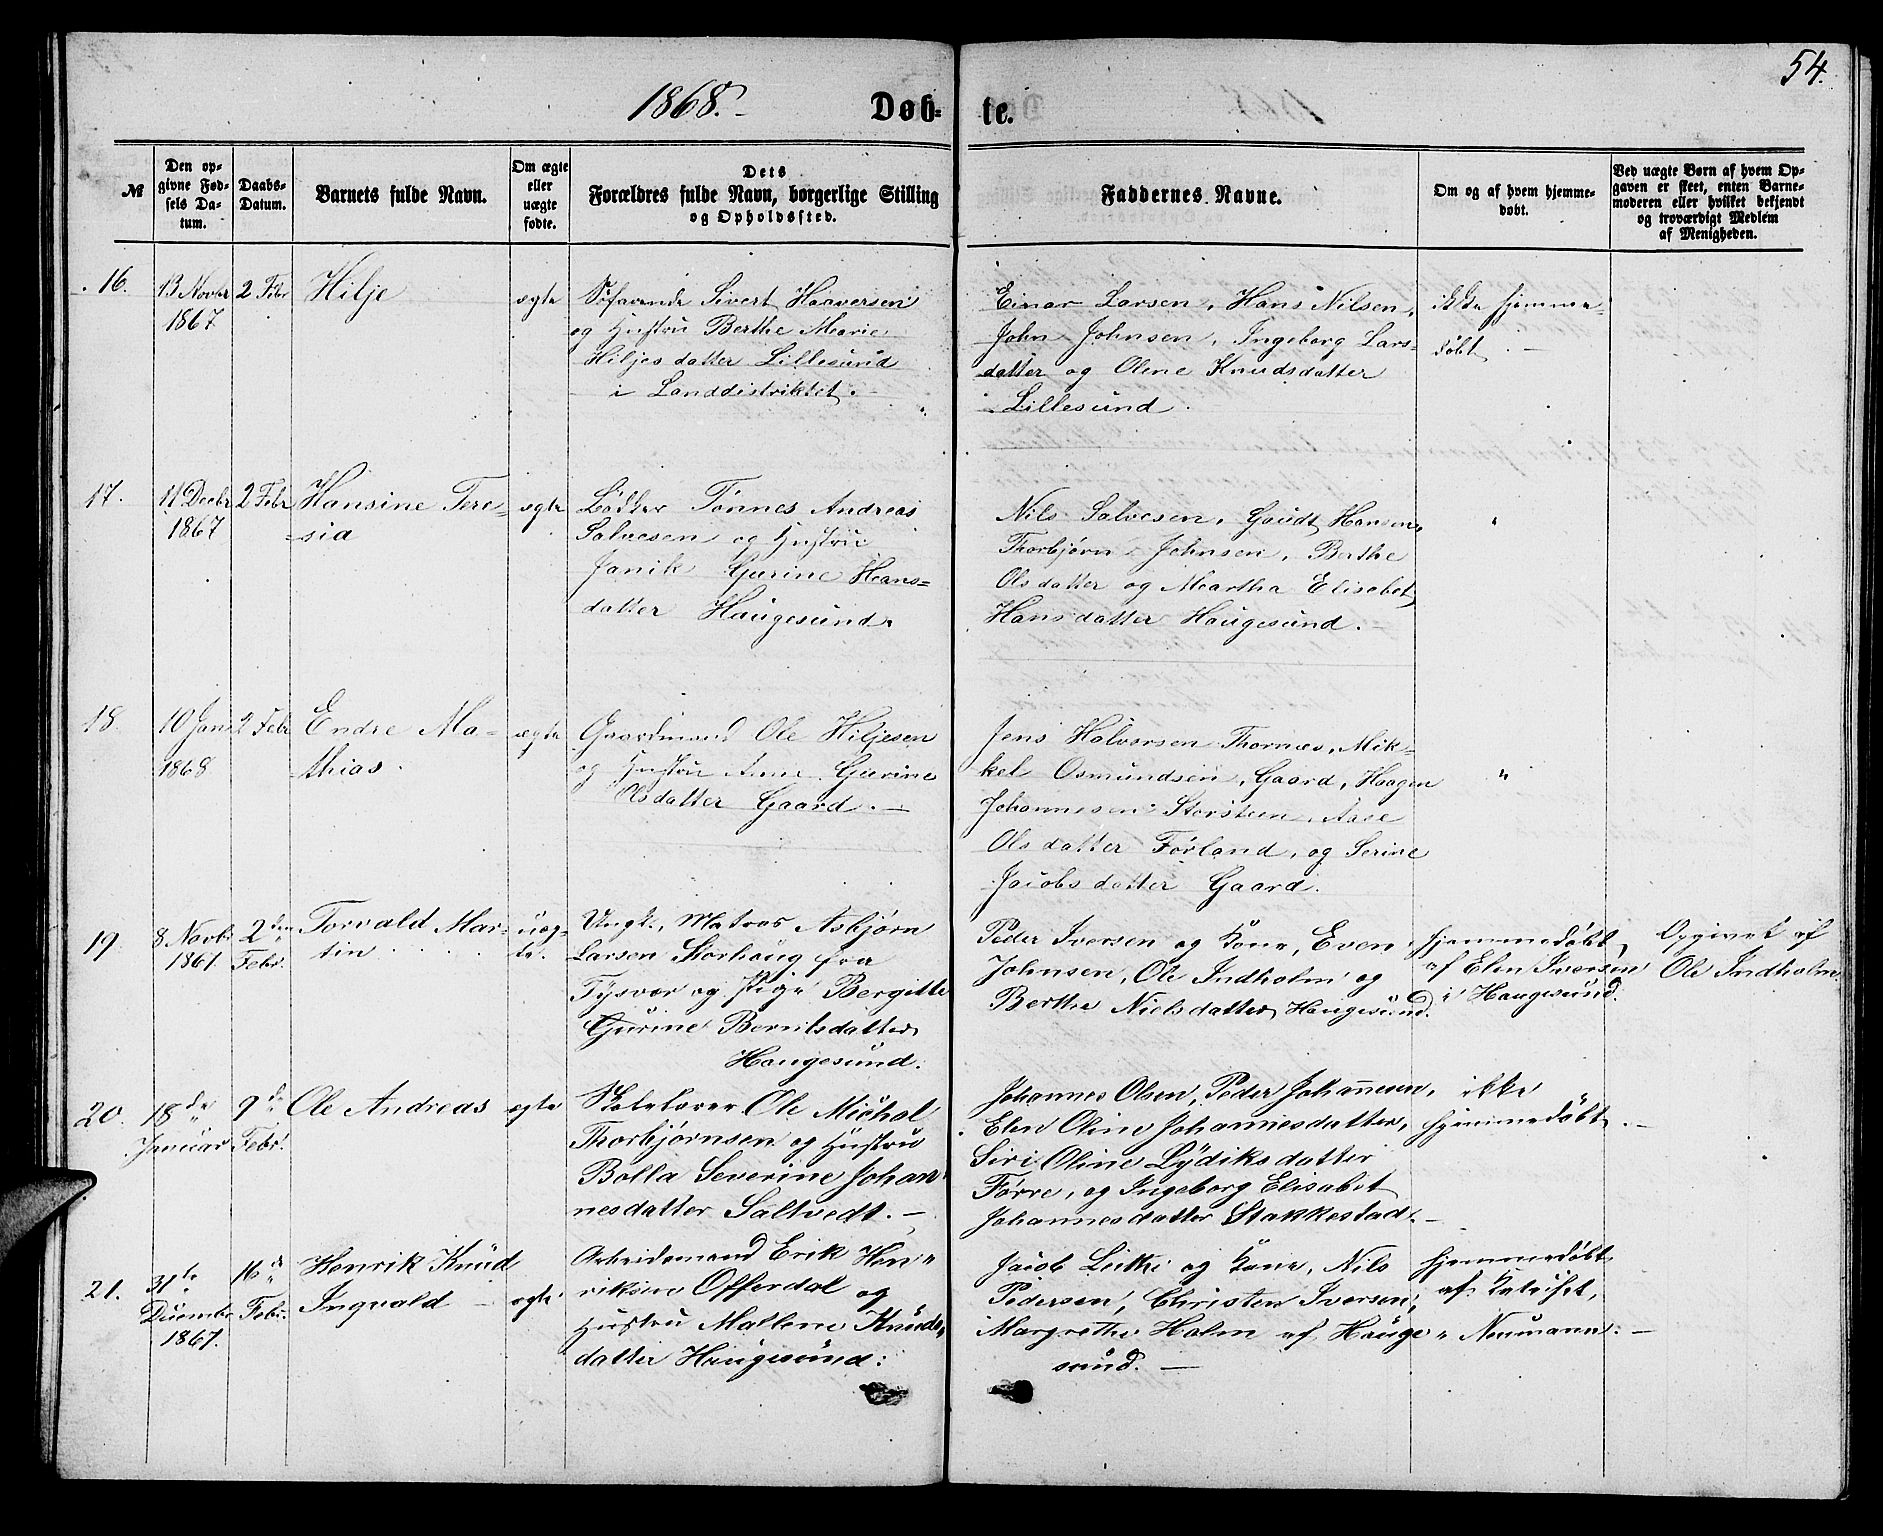 54.
1868.
Døb-
te.
№
Den op-
givne Fød-
sels Da-
tum.
Daabs-
Datum.
Barnets fulde Navn.
Om ægte
eller
uægte
fødte.
Dets
Forældres fulde Navn, borgerlige Stilling
og Opholdssted.
Faddernes Navne.
Om og af hvem hjemme-
døbt.
Ved uægte Børn af hvem Op-
gaven er skeet, enten Barne-
moderen eller hvilket bekjendt
og troværdigt Medlem
af Menigheden.
16.
13 Novbr
1867
2 Febr
Hilje
ægte
Søfarende Sivert Haaversen
og Hustru Berthe Marie
Hiljesdatter Lillesund
i Landdistriktet.
Einar Larsen, Hans Nilsen,
John Johnsen, Ingeborg Lars-
datter og Oline Knudsdatter
Lillesund.
ikke hjemme-
døbt.
17.
11 Decbr
1867
2 Febr
Hansine Tere-
sia
ægte
Bødker Tønnes Andreas
Salvesen og Hustru
Janik Gurine Hans-
datter Haugesund.
Nils Salvesen, Gaudt Hansen,
Thorbjørn Johnsen, Berthe
Olsdatter og Martha Elisabet
Hansdatter Haugesund.
"
18.
10 Janr
1868
2 Febr
Endre Ma-
thias.
ægte
Gaardmand Ole Hiljesen
og Hustru Anne Gurine
Olsdatter Gaard.
Jens Halvorsen Thornæs, Mik-
kel Osmundsen, Gaard, Haagen
Johannesen Storsteen, Aase
Olsdatter Førland, og Serine
Jacobsdatter Gaard.
"
19.
8 Novbr
1861
2den
Febr.
Torvald Mar-
tin
uæg-
te.
Ungk., Matros Asbjørn
Larsen Storhaug fra
Tysvær og Pige Bergitte
Gurine Berntsdatter
Haugesund.
Peder Iversen og Kone, Even
Johnsen, Ole Indholm og
Berthe Nielsdatter Haugesund.
hjemmedøbt
af Elen Iversen
i Haugesund.
Opgivet af
Ole Indholm.
20.
18de
Januar
9de
Febr.
Ole Andreas
ægte
Skolelærer Ole Michal
Thorbjørnsen og Hustru
Bolla Severine Johan-
nesdatter Saltvedt.
Johannes Olsen, Peder Johannesen,
Elen Oline Johannesdatter,
Siri Oline Lydiksdatter
Førre, og Ingeborg Elisabet
Johannesdatter Stakkestad.
ikke
hjemmedøbt.
21.
31te
Decembr
1867.
16de
Febr.
Henrik Knud
Ingvald
ægte
Arbeidsmand Erik Hen-
riksen Offerdal og
Hustru Mallene Knuds-
datter Haugesund.
Jacob Leithe og Kone, Nils
Pedersen, Christen Iversen,
Margrethe Holm af Hauge-
sund.
hjemmedøbt
af Katechet,
Neumann.